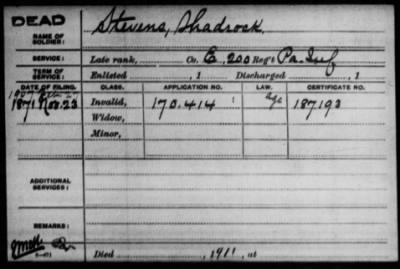 DEAD
NAME OF SOLDIER: Stevens, Shadrock
SERVICE: Late rank, Co. E, 200 Reg't Pa. Inf
TERM OF SERVICE: Enlisted , 1 Discharged , 1
DATE OF FILING. CLASS. APPLICATION NO. LAW. CERTIFICATE NO.
1871 Nov. 23 Invalid, 170.414 Age 187193
Widow,
Minor,
ADDITIONAL SERVICES:
REMARKS:
Died , 1911, at